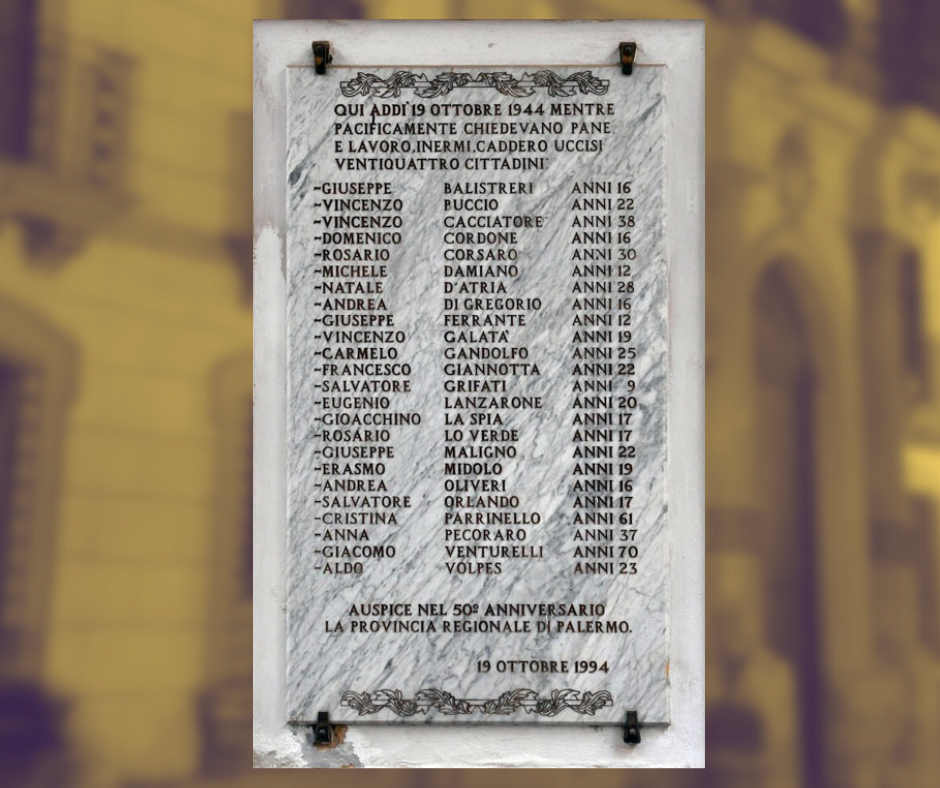 QUI ADDI' 19 OTTOBRE 1944 MENTRE
PACIFICAMENTE CHIEDEVANO PANE
E LAVORO, INERMI, CADDERO UCCISI
VENTIQUATTRO CITTADINI:
-GIUSEPPE BALISTRERI ANNI 16
-VINCENZO BUCCIO ANNI 22
-VINCENZO CACCIATORE ANNI 38
-DOMENICO CORDONE ANNI 16
-ROSARIO CORSARO ANNI 30
-MICHELE DAMIANO ANNI 12
-NATALE D'ATRIA ANNI 28
-ANDREA DI GREGORIO ANNI 16
-GIUSEPPE FERRANTE ANNI 12
-VINCENZO GALATA' ANNI 19
-CARMELO GANDOLFO ANNI 25
-FRANCESCO GIANNOTTA ANNI 22
-SALVATORE GRIFATI ANNI 9
-EUGENIO LANZARONE ANNI 20
-GIOACCHINO LA SPIA ANNI 17
-ROSARIO LO VERDE ANNI 17
-GIUSEPPE MALIGNO ANNI 22
-ERASMO MIDOLO ANNI 19
-ANDREA OLIVERI ANNI 16
-SALVATORE ORLANDO ANNI 17
-CRISTINA PARRINELLO ANNI 61
-ANNA PECORARO ANNI 37
-GIACOMO VENTURELLI ANNI 70
-ALDO VOLPES ANNI 23
AUSPICE NEL 50º ANNIVERSARIO
LA PROVINCIA REGIONALE DI PALERMO.
19 OTTOBRE 1994